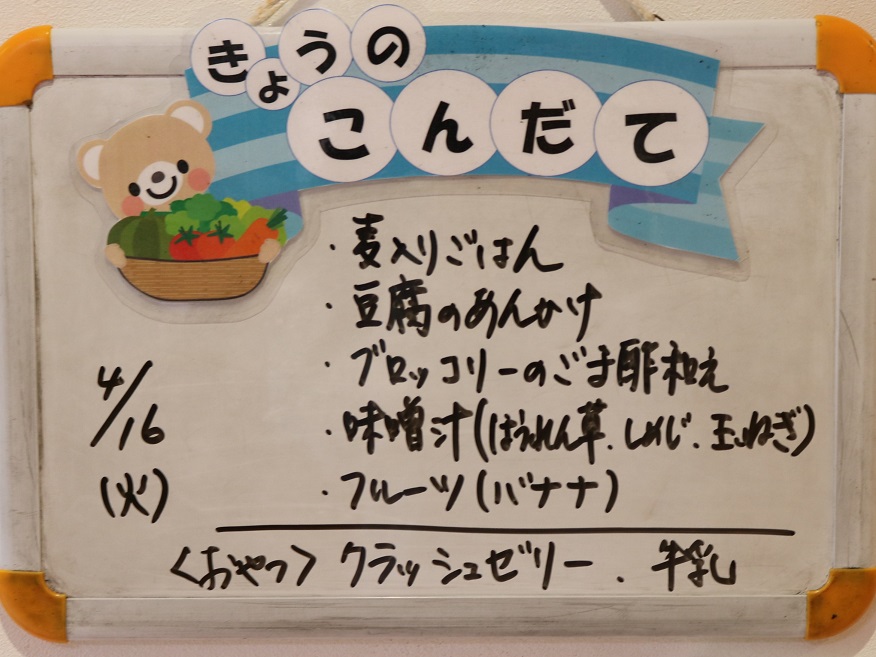 きょうの
こんだて
・麦入りごはん
・豆腐のあんかけ
・ブロッコリーのごま酢和え
・味噌汁(ほうれん草、しめじ、玉ねぎ)
・フルーツ(バナナ)
4/16
(火)
<おやつ> クラッシュゼリー、牛乳